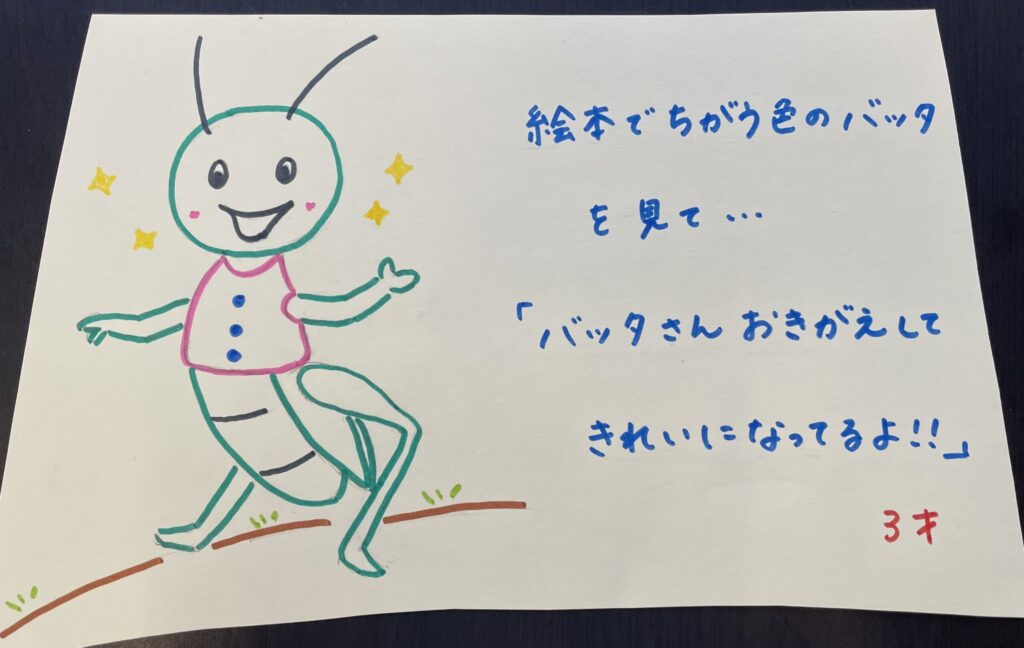 絵本でちがう色のバッタ
を見て…
「バッタさん おきがえして
きれいになってるよ!!」
3才